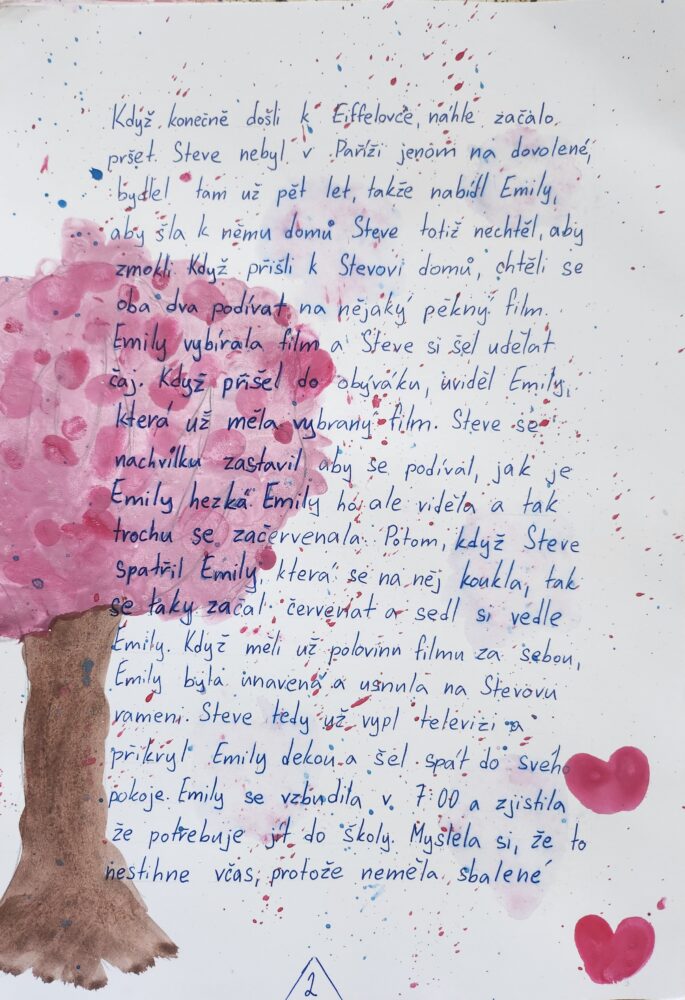 Když konečně došli k Eiffelovce, náhle začalo
pršet. Steve nebyl v Paříži jenom na dovolené,
bydlel tam už pět let, takže nabídl Emily,
aby šla k němu domů Steve totiž nechtěl, aby
zmokli. Když přišli k Stevovi domů, chtěli se
oba dva podívat na nějaký pěkný film.
Emily vybírala film a Steve si šel udělat
čaj. Když přišel do obýváku, uviděl Emily,
která už měla vybraný film. Steve se
nachvilku zastavil, aby se podíval, jak je
Emily hezká. Emily ho ale viděla a tak
trochu se začervenala. Potom, když Steve
spatřil Emily, která se na něj koukla, tak
se taky začal červenat a sedl si vedle
Emily. Když měli už polovinu filmu za sebou,
Emily byla unavená a usnula na Stevovu
rameni. Steve tedy už vypl televizi a
přikryl Emily dekou a šel spát do svého
pokoje. Emily se vzbudila v 7:00 a zjistila
že potřebuje jít do školy. Myslela si, že to
nestihne včas, protože neměla sbalené
2